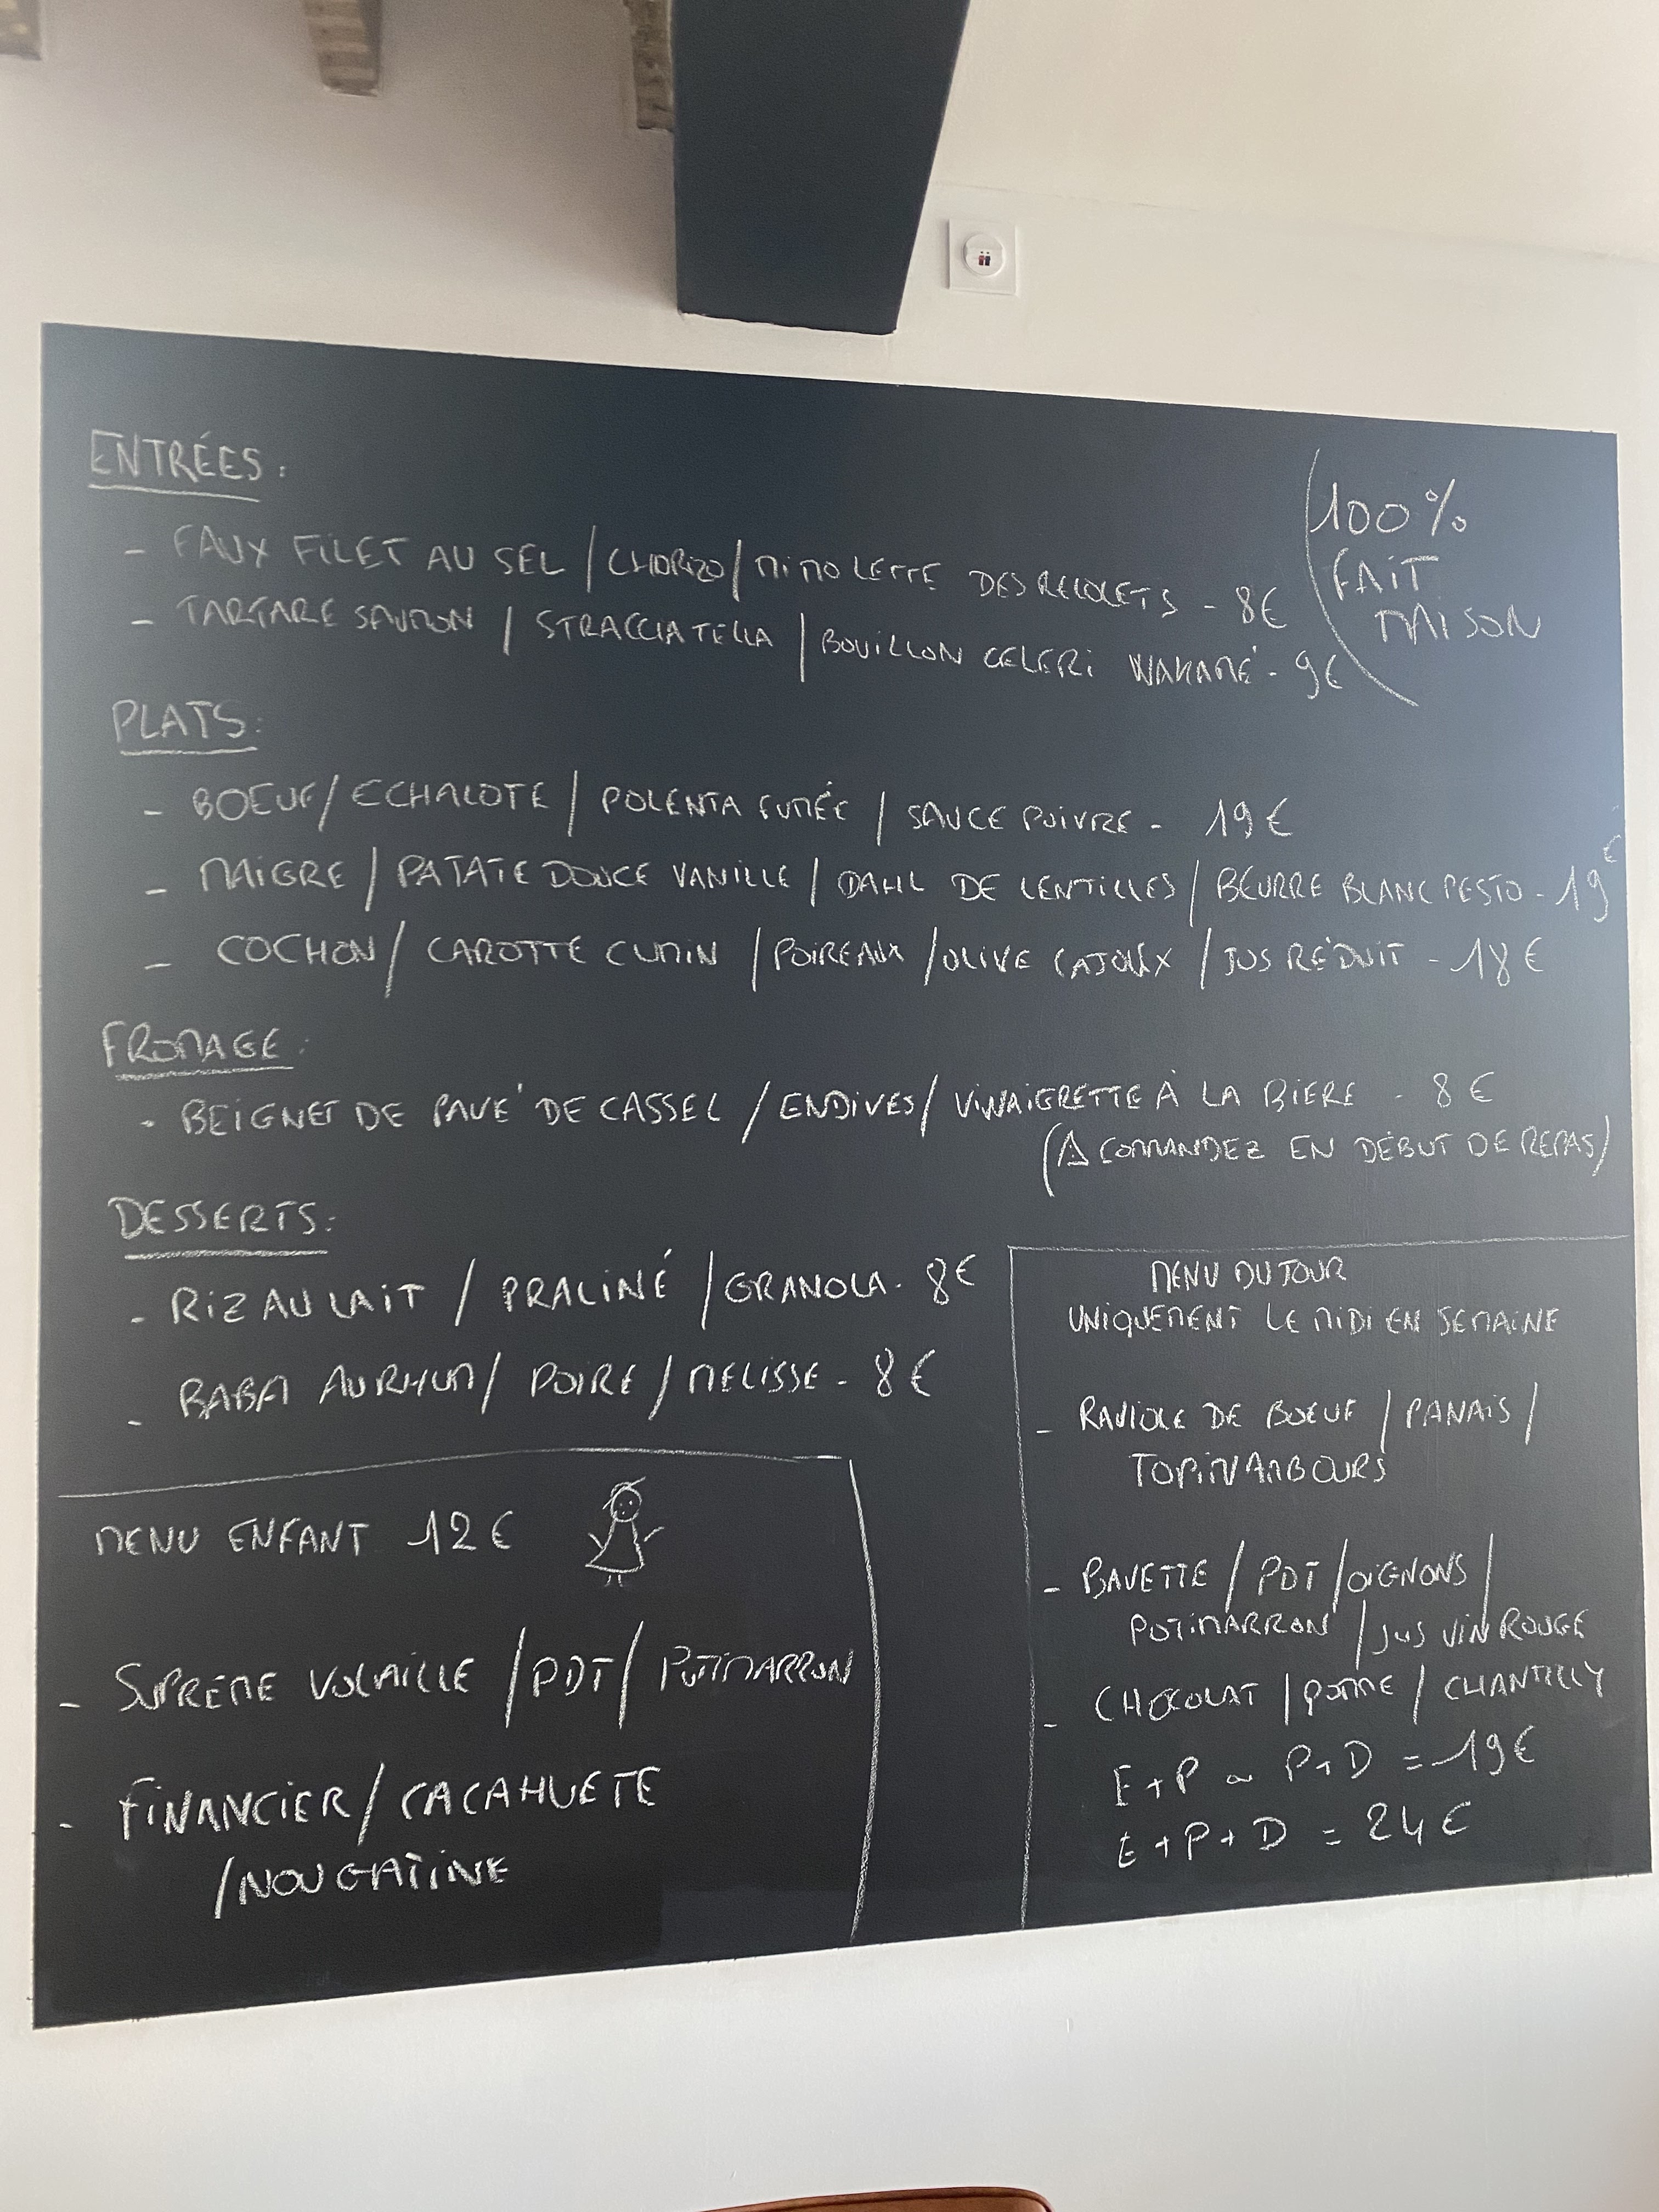 ENTRÉES:
- FAUX FILET AU SEL / CHORIZO / MIMOLETTE DES RECOLETS - 8€
- TARTARE SAUMON / STRACCIATELLA / BOUILLON CELERI WAKAMÉ - 9€
100%
FAIT
MAISON
PLATS:
- BOEUF / ECHALOTE / POLENTA FUMÉE / SAUCE POIVRE - 19€
- MAIGRE / PATATE DOUCE VANILLE / DAHL DE LENTILLES / BEURRE BLANC PESTO - 19€
- COCHON / CAROTTE CUMIN / POIREAUX / OLIVE CAJOUX / JUS RÉDUIT - 18€
FROMAGE:
- BEIGNET DE PAVÉ DE CASSEL / ENDIVES / VINAIGRETTE À LA BIERE - 8€
(⚠ COMMANDEZ EN DÉBUT DE REPAS)
DESSERTS:
- RIZ AU LAIT / PRALINÉ / GRANOLA - 8€
- BABA AU RHUM / POIRE / MELISSE - 8€
MENU ENFANT 12€
- SUPRÊME VOLAILLE / PDT / POTIMARRON
- FINANCIER / CACAHUETE
/ NOUGATINE
MENU DU JOUR
UNIQUEMENT LE MIDI EN SEMAINE
- RAVIOLE DE BOEUF / PANAIS /
TOPINAMBOURS
- BAVETTE / PDT / OIGNONS /
POTIMARRON / JUS VIN ROUGE
- CHOCOLAT / POMME / CHANTILLY
E+P ou P+D = 19€
E+P+D = 24€